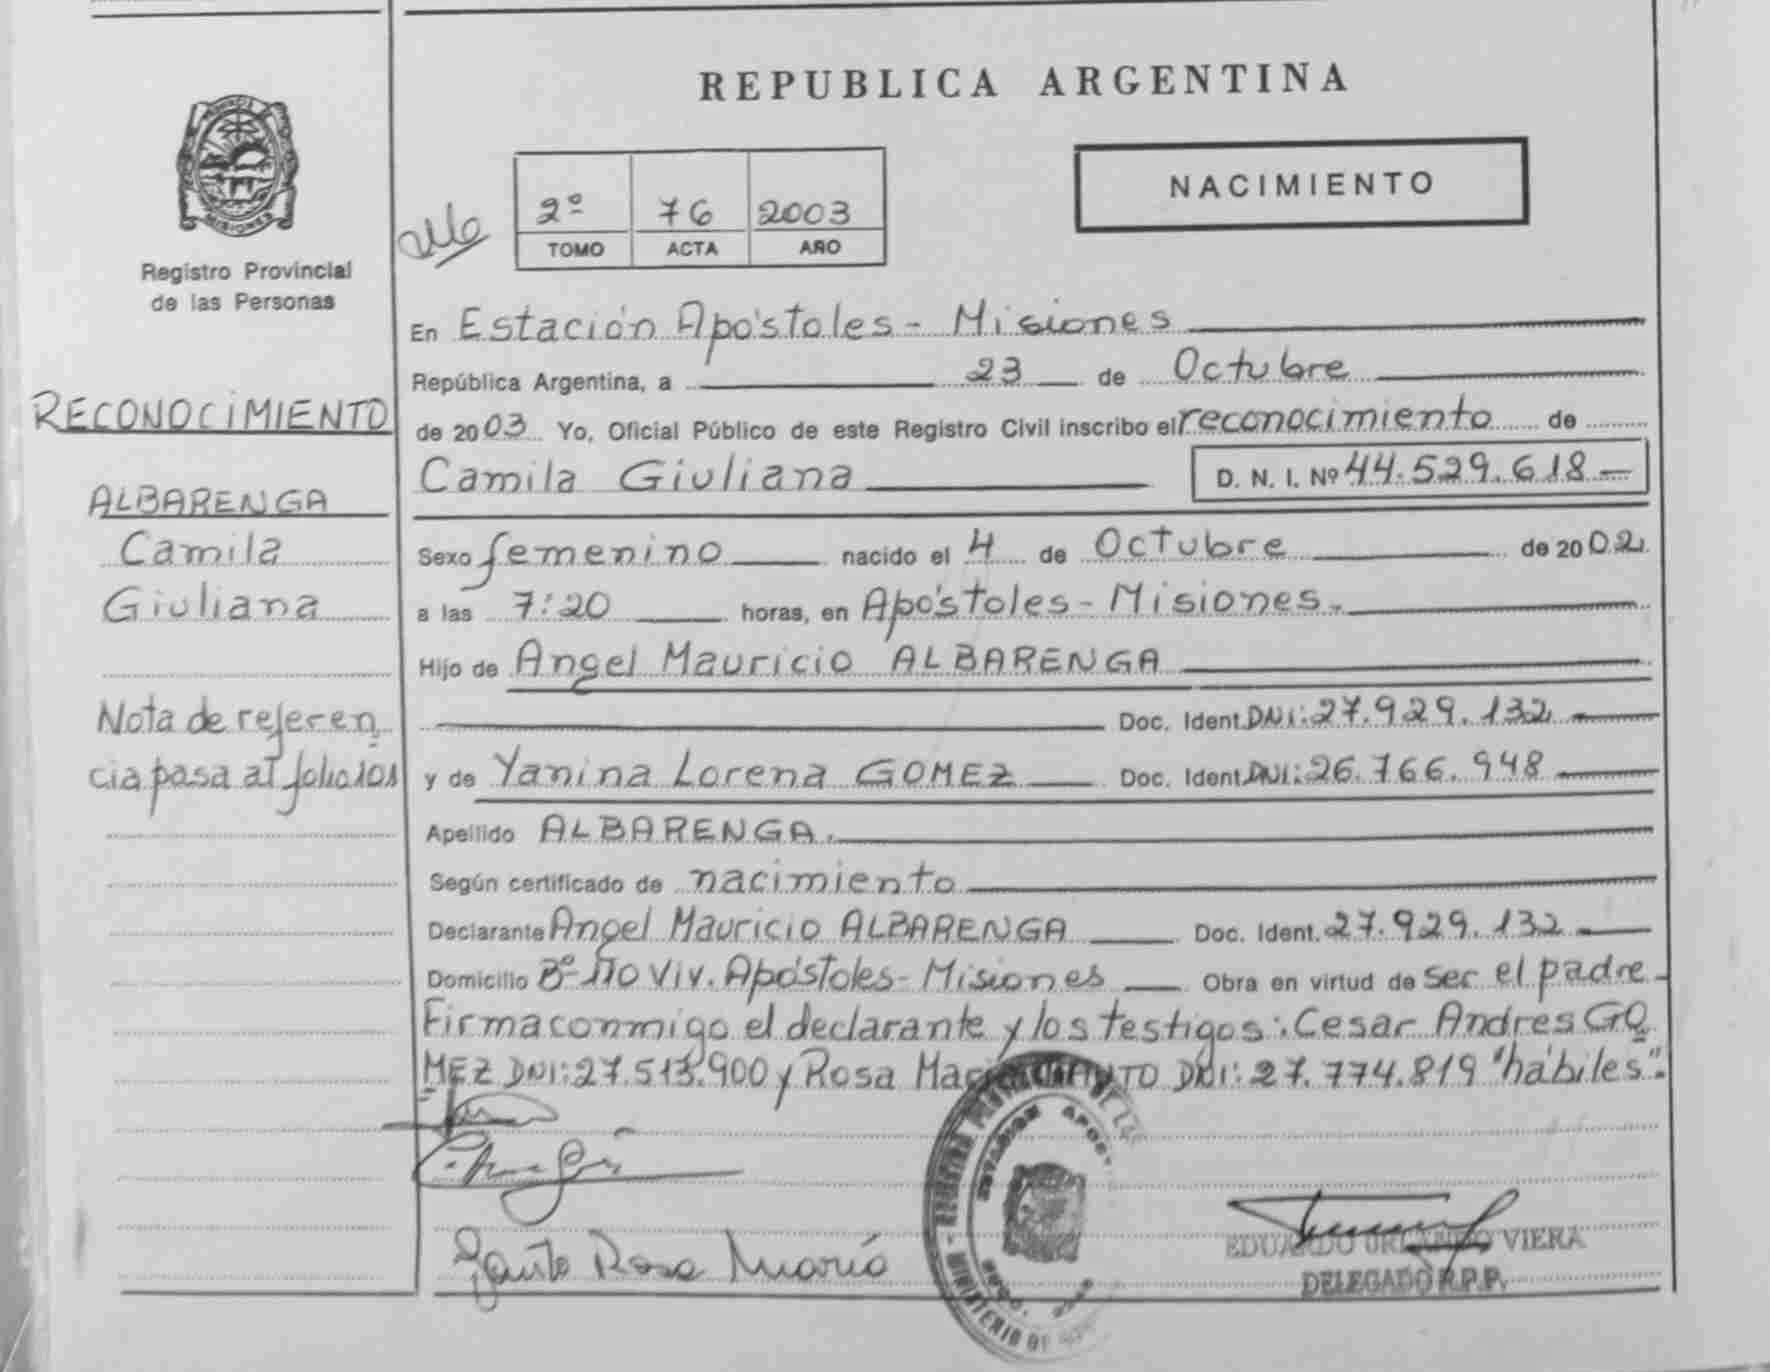 REPUBLICA ARGENTINA
NACIMIENTO
2º 76 2003
TOMO ACTA AÑO
MISIONES
Registro Provincial
de las Personas
RECONOCIMIENTO
ALBARENGA
Camila
Giuliana
Nota de referen
cia pasa al folio 101
En Estación Apóstoles - Misiones
República Argentina, a 23 de Octubre
de 2003 Yo, Oficial Público de este Registro Civil inscribo el reconocimiento de
Camila Giuliana D. N. I. Nº 44.529.618
Sexo femenino nacido el 4 de Octubre de 2002
a las 7:20 horas, en Apóstoles - Misiones.
Hijo de Angel Mauricio ALBARENGA
Doc. Ident. DNI: 27.929.132
y de Yanina Lorena GOMEZ Doc. Ident. DNI: 26.766.948
Apellido ALBARENGA.
Según certificado de nacimiento
Declarante Angel Mauricio ALBARENGA Doc. Ident. 27.929.132
Domicilio Bº 110 Viv. Apóstoles - Misiones Obra en virtud de ser el padre
Firma conmigo el declarante y los testigos: Cesar Andres GO
MEZ DNI: 27.513.900 y Rosa Maria DNI: 27.774.819 "hábiles".
Rosa María
EDUARDO ORLANDO VIERA
DELEGADO R.P.P.
ESTACION APOS.
MINISTERIO DE